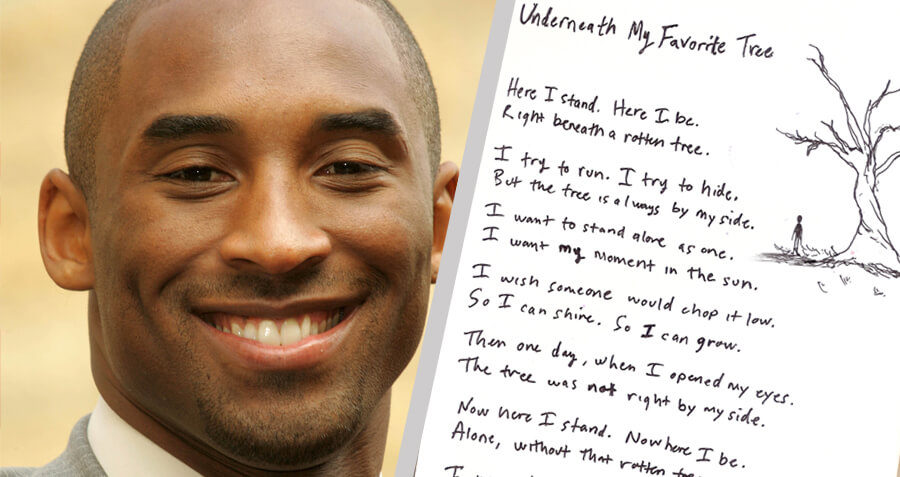 Underneath My Favorite Tree
Here I stand. Here I be.
Right beneath a rotten tree.
I try to run. I try to hide.
But the tree is always by my side.
I want to stand alone as one.
I want my moment in the sun.
I wish someone would chop it low.
So I can shine. So I can grow.
Then one day, when I opened my eyes.
The tree was not right by my side.
Now here I stand. Now here I be.
Alone, without that rotten
I